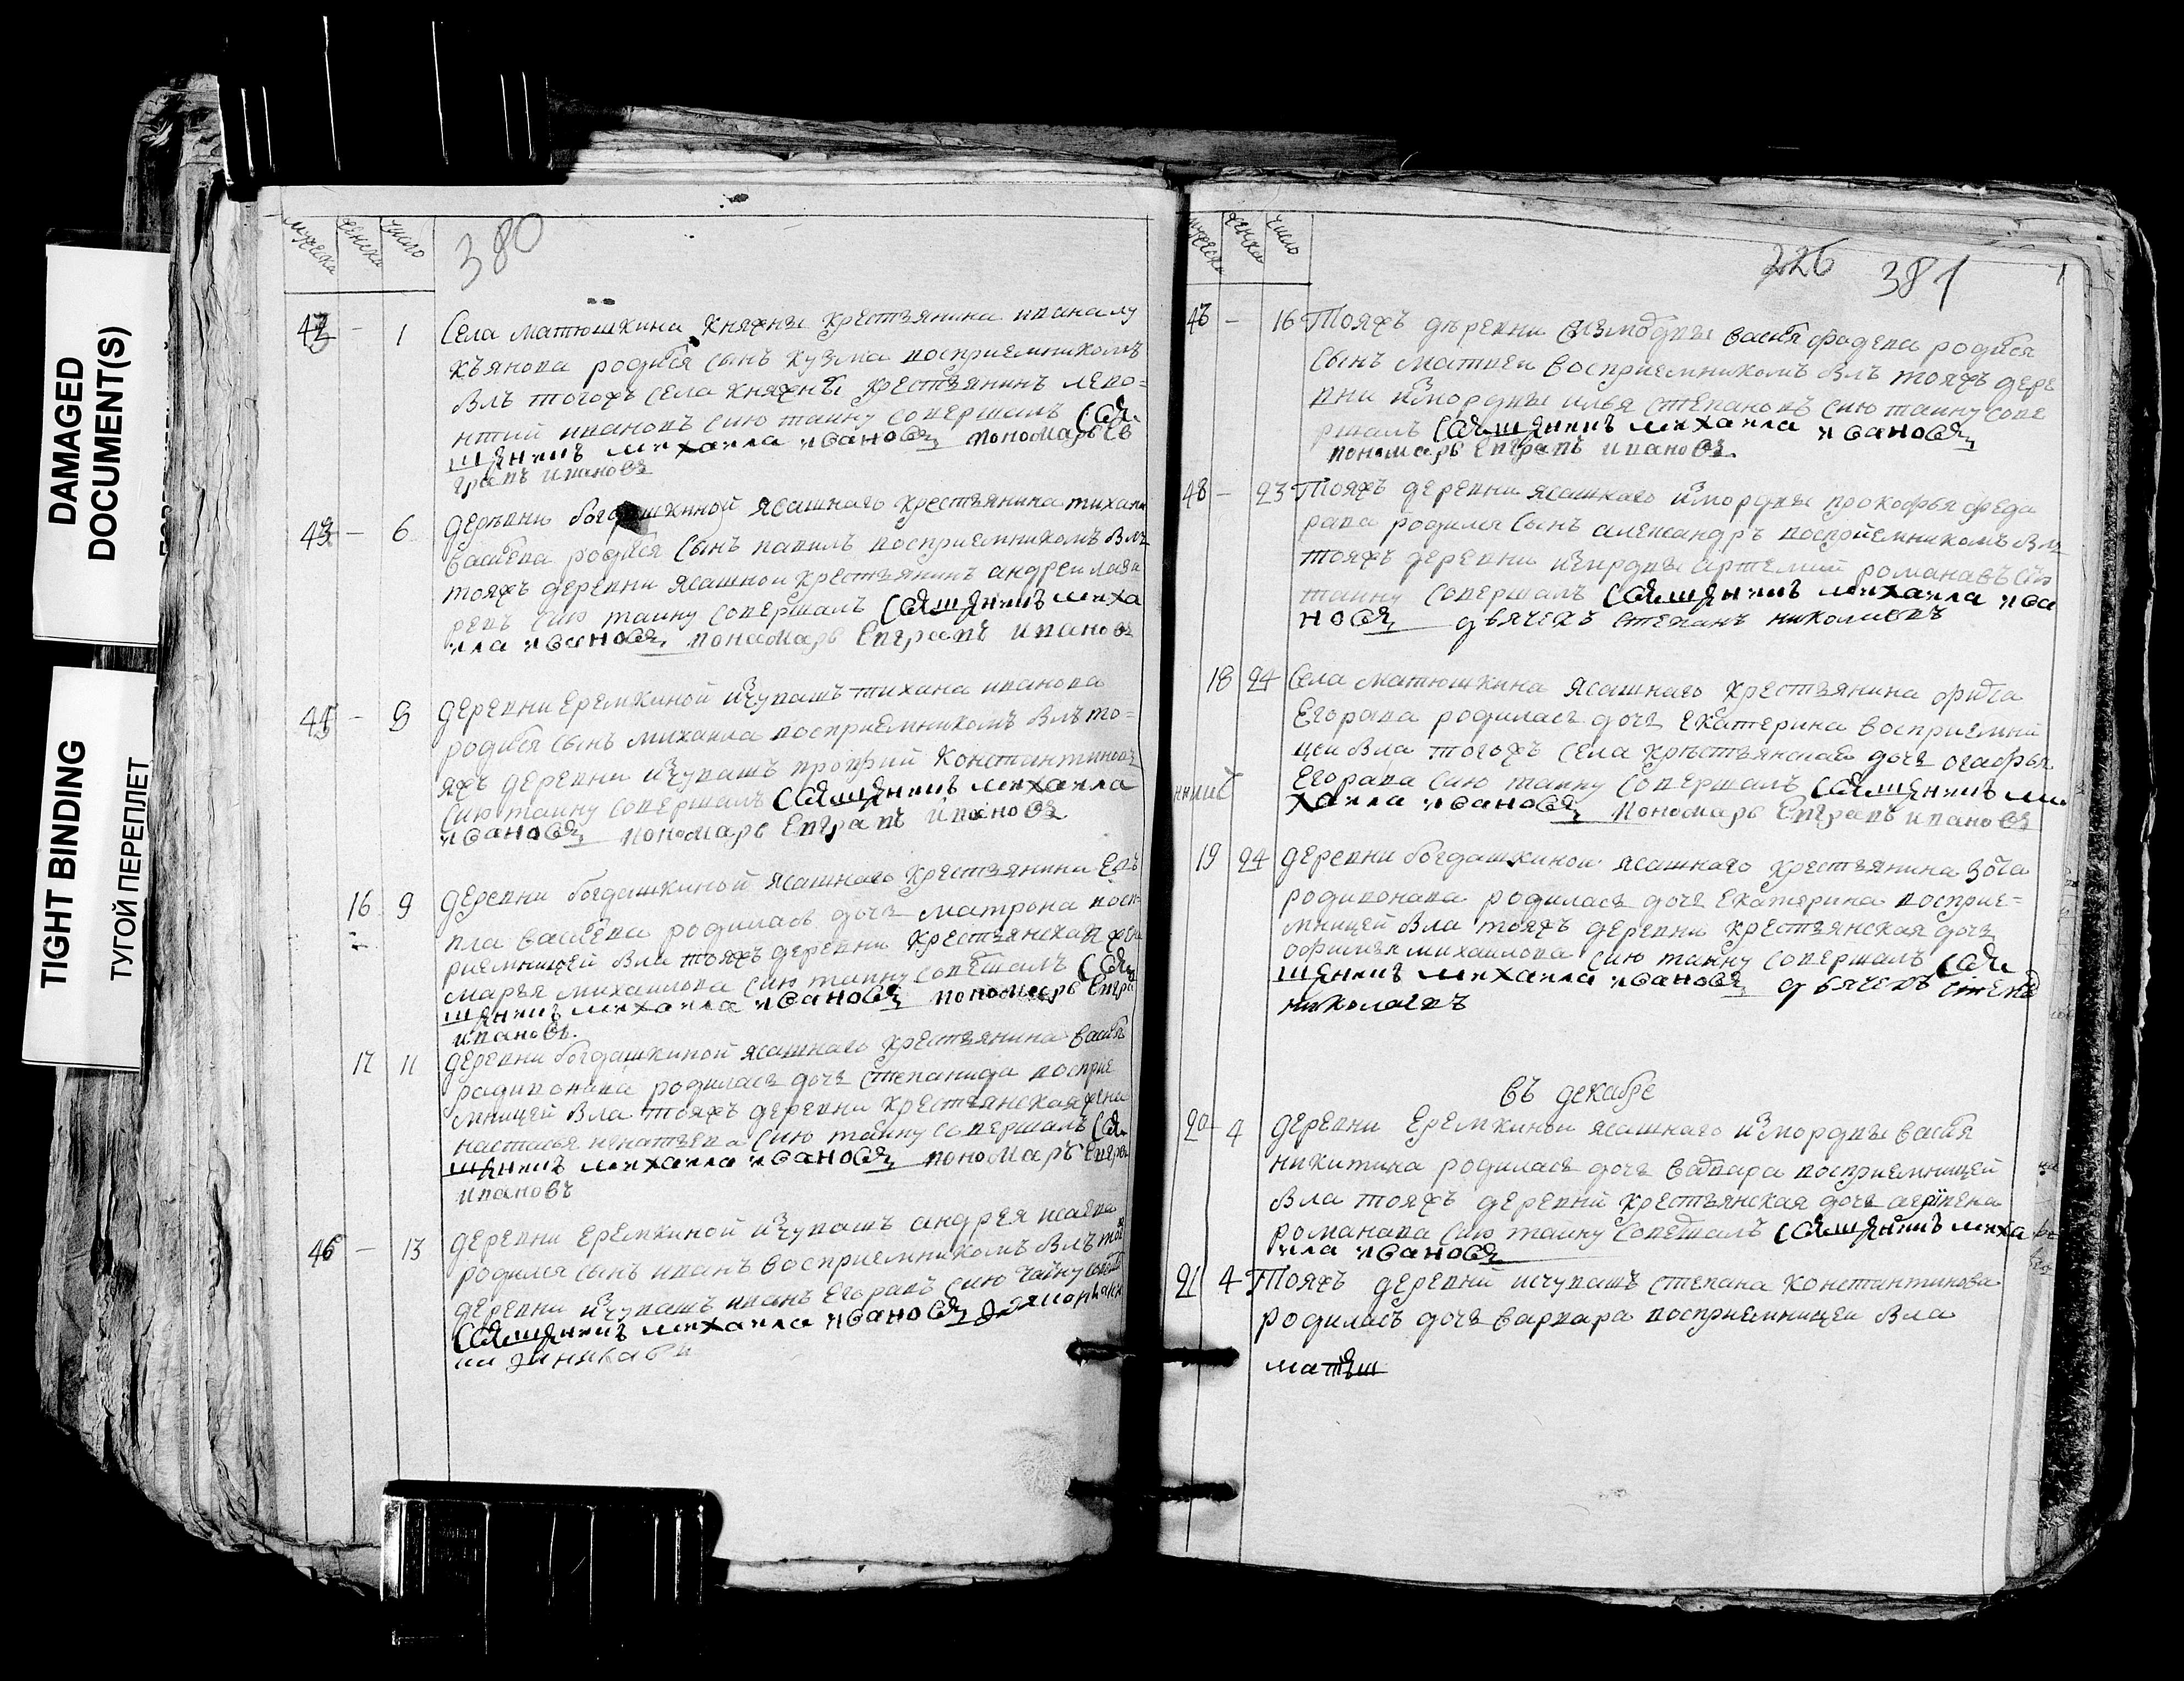 DAMAGED
DOCUMENT(S)
TIGHT BINDING
ТУГОЙ ПЕРЕПЛЕТ
мужеска
женска
число
380
43 - 1 Села матюшкина княжны крестьянина ивана лу
кьянова родился сынъ кузма восприемникомъ
былъ тогожъ села княжны крестьянинъ лево=
нтий ивановъ сию таину совершалъ свя
щенникъ михаила ивановъ пономарь ев
графъ ивановъ
43 - 6 деревни богдашкиной ясашнаго крестьянина тихана
васильева родился сынъ павилъ восприемникомъ былъ
тояжъ деревни ясашной крестьянинъ андреи лаза
ревъ сию таину совершалъ священникъ миха
ила ивановъ пономарь евграфъ ивановъ
- 8 деревни еремкиной изчувашъ тихана иванова
родился сынъ михаила восприемникомъ былъ то=
яжъ деревни изчувашъ Константиновъ
сию таину совершалъ священникъ михаила
ивановъ пономарь евграфъ ивановъ
16 9 деревни богдашкиной ясашнаго крестьянина
вла васильева родилась дочь матрона восп
риемницей была тояжъ деревни крестьянская жена
марья михаилова сию таину совершалъ свя
щенникъ михаила ивановъ пономарь евгра
ивановъ.
17 11 деревни богдашкиной ясашнаго крестьянина василья
радивонова родилась дочь степанида восприе
мницей была тояжъ деревни крестьянская жена
настасья игнатьева сию таину совершалъ свя
щенникъ михаила ивановъ пономарь евгра
ивановъ
46 - 13 деревни еремкиной изчувашъ андрея исаева
родился сынъ иванъ восприемникомъ былъ тоя
деревни изчувашъ иванъ егоравъ сию тайну
священникъ михаила ивановъ
мужеска
женска
число
226 381
46 - 16 Тояжъ деревни измордвы василья фадеева родился
сынъ матвеи восприемникомъ былъ тояжъ дере
вни измордвы илья степановъ сию таину сове
ршалъ священникъ михаила ивановъ
пономарь евграфъ ивановъ.
48 - 23 Тояжъ деревни ясашнаго измордвы прокофья феда
рава родился сынъ александръ восприемникомъ былъ
тояжъ деревни измордвы артемий романавъ сию
таину совершалъ священникъ михаила ива
новъ дьячекъ степанъ николаевъ
18 24 Села матюшкина ясашнаго крестьянина
егорава родилась дочь екатерина восприемни
цеи была тогожъ села крестьянская дочь огафья
егорава сию таину совершалъ священникъ ми
хаила ивановъ пономарь евграфъ ивановъ
19 24 деревни богдашкиной ясашнаго крестьянина зота
родивонава родилась дочь екатерина восприе=
мницей была тояжъ деревни крестьянская дочь
офимья михаилова сию таину совершалъ свя
щенникъ михаила ивановъ дьячекъ степанъ
николаевъ
въ декабре
20 4 деревни еремкиной ясашнаго измордвы василья
никитина родилась дочь варвара восприемницей
была тояжъ деревни крестьянская дочь агрипена
романава сию таину совершалъ священникъ миха
ила ивановъ
21 4 Тояжъ деревни изчувашъ степана константинова
родилась дочь варвара восприемницеи была